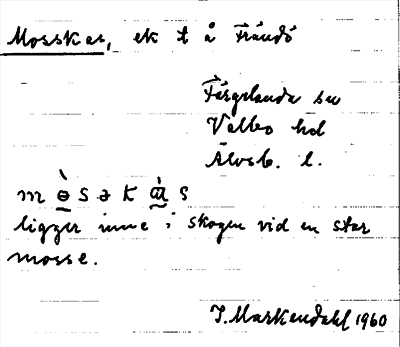 Mosskas, ek t å Frändö
Färgelanda sn
Valbo hd
Älvsb. l.
ligger inne i skogen vid en stor
mosse.
I. Markendahl 1960